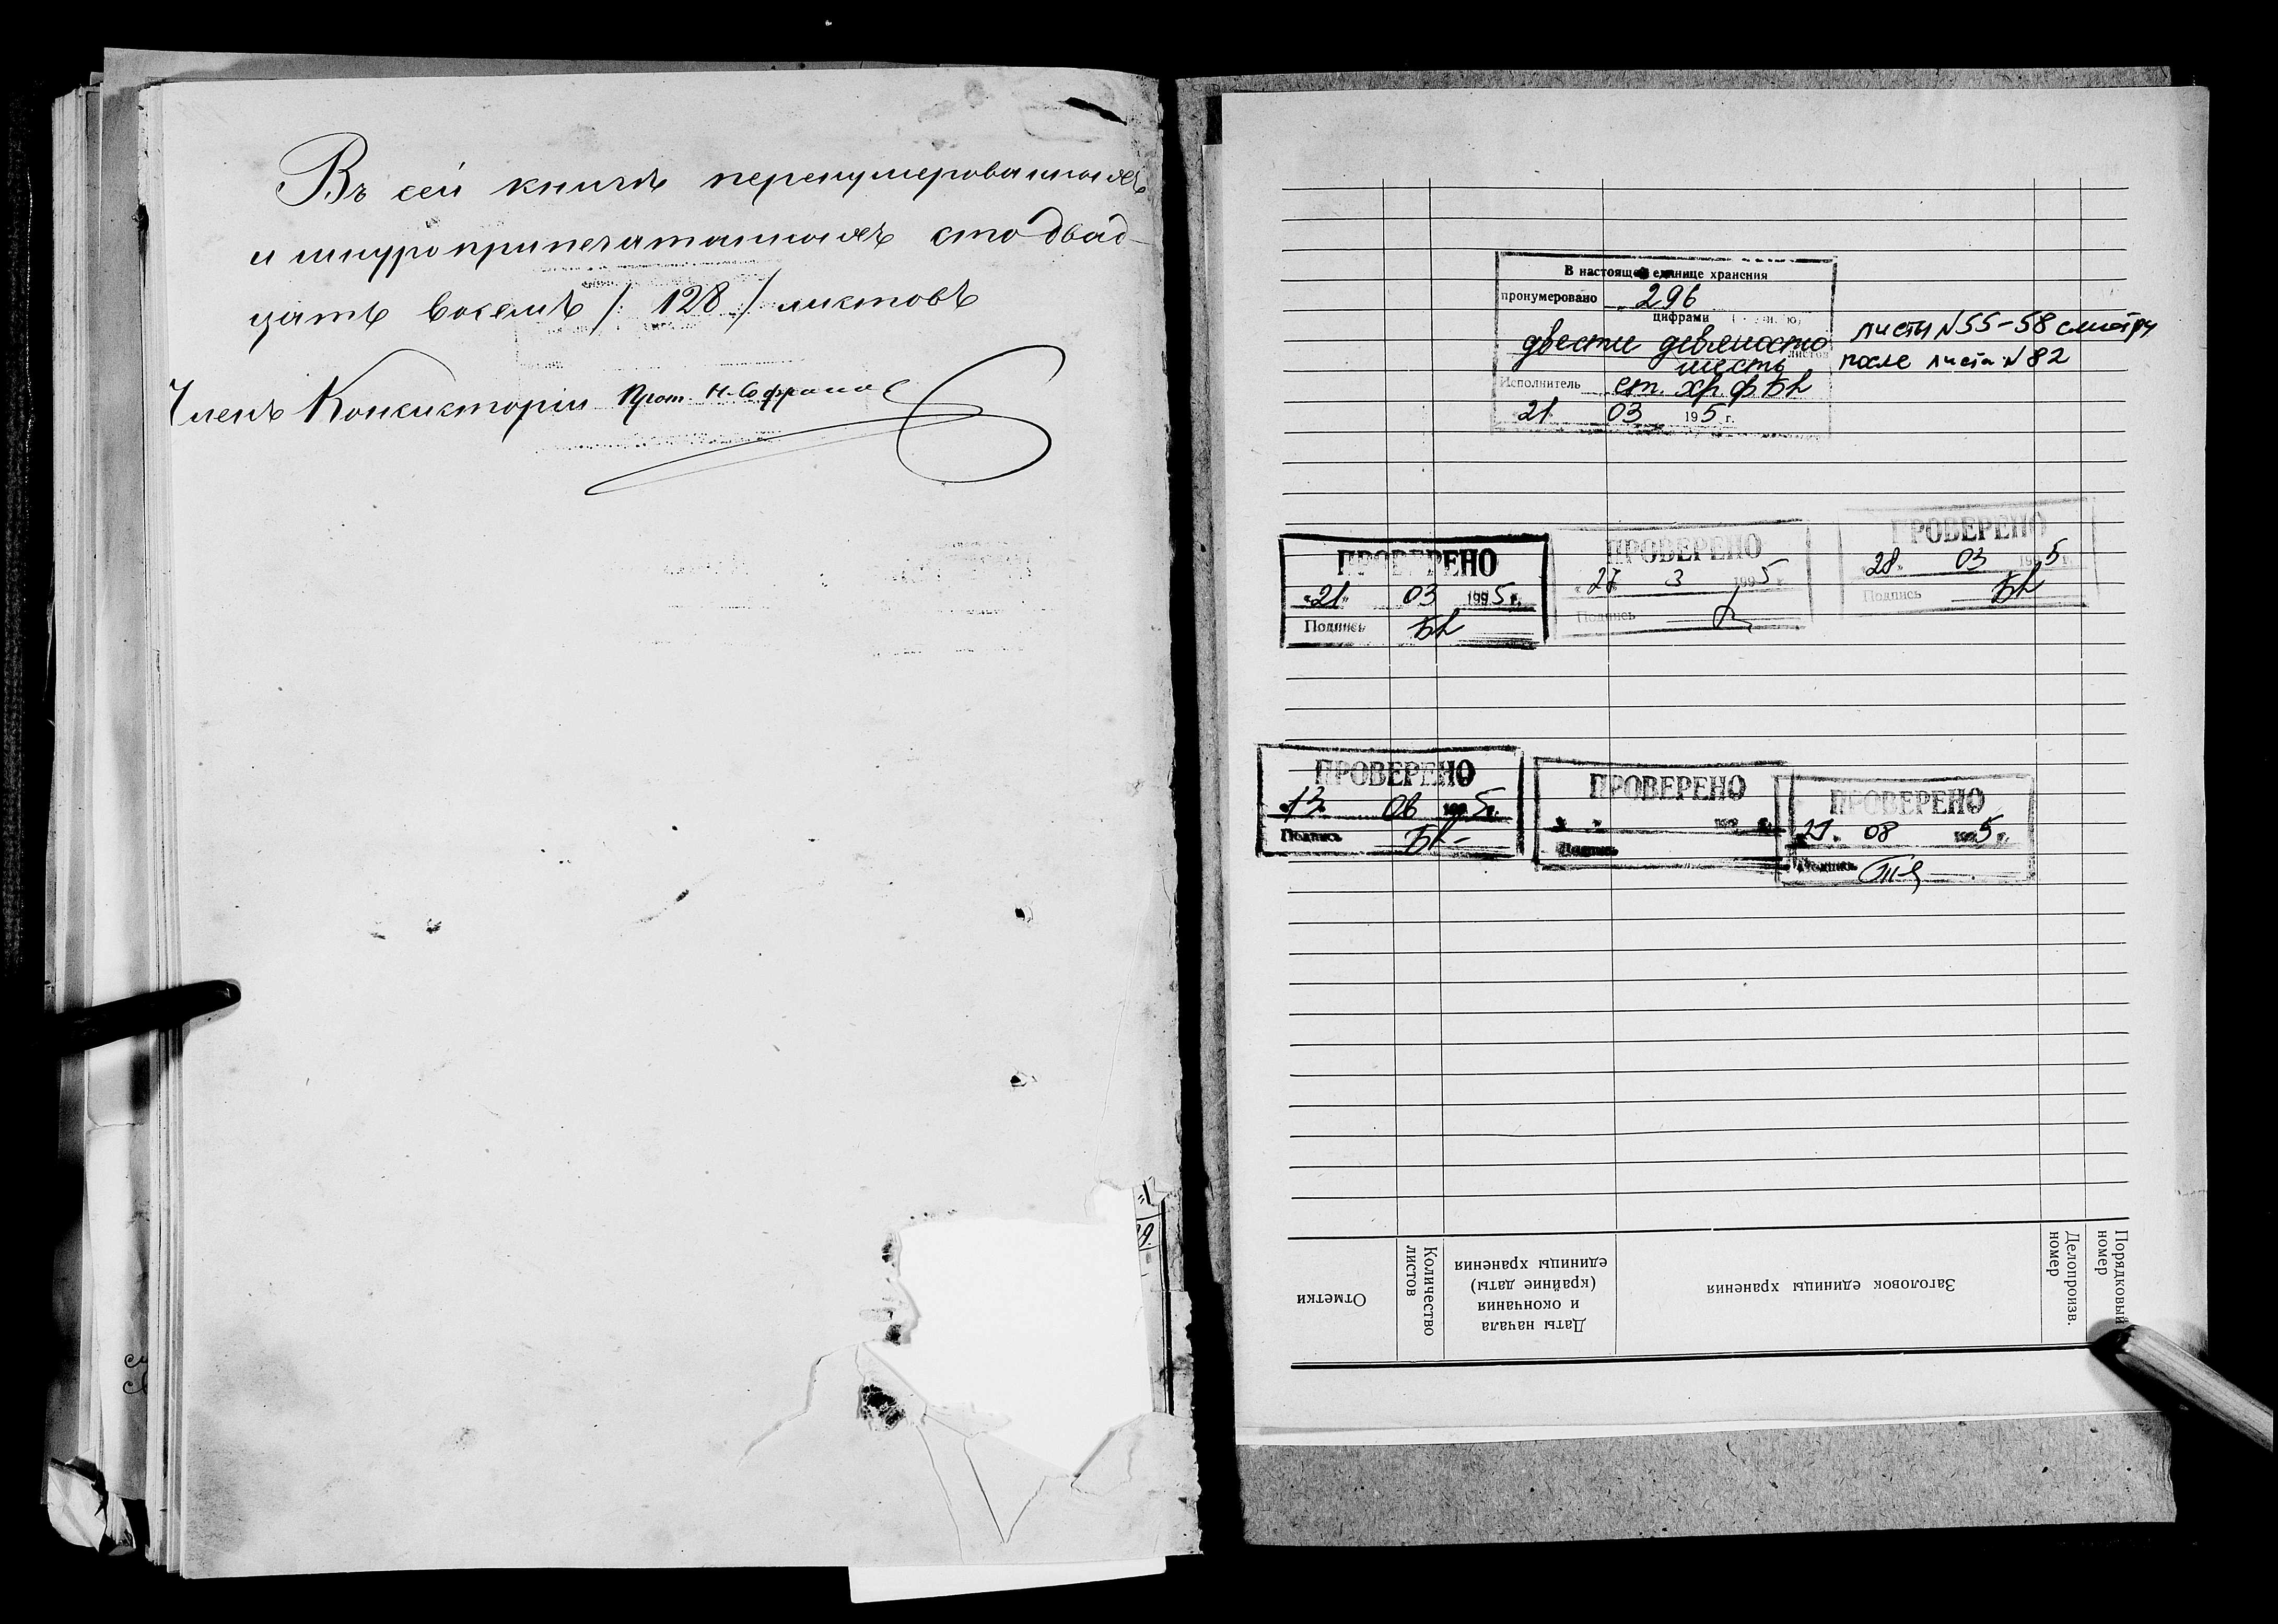 Въ сей книгѣ перенумерованныхъ
и шнуроприпечатанныхъ сто двад-
цать восемь /: 128 :/ листовъ
Членъ Консисторіи Прот. Н. Софронов
В настоящей единице хранения
пронумеровано 296
цифрами
двести девяносто
листов
шесть
Исполнитель ст. хр. ф.
21 03 1995 г.
листы N 55-58 смотри
после листа N 82
ПРОВЕРЕНО
«21» 03 1995 г.
Подпись
ПРОВЕРЕНО
«27» 3 1995 г.
Подпись
ПРОВЕРЕНО
«28» 03 1995 г.
Подпись
ПРОВЕРЕНО
«13» 06 1995 г.
Подпись
ПРОВЕРЕНО
« » 199 г.
Подпись
ПРОВЕРЕНО
08 1995 г.
Подпись
Порядковый номер
Делопроизв. номер
Заголовок единицы хранения
Даты начала
и окончания
(крайние даты)
единицы хранения
Количество
листов
Отметки